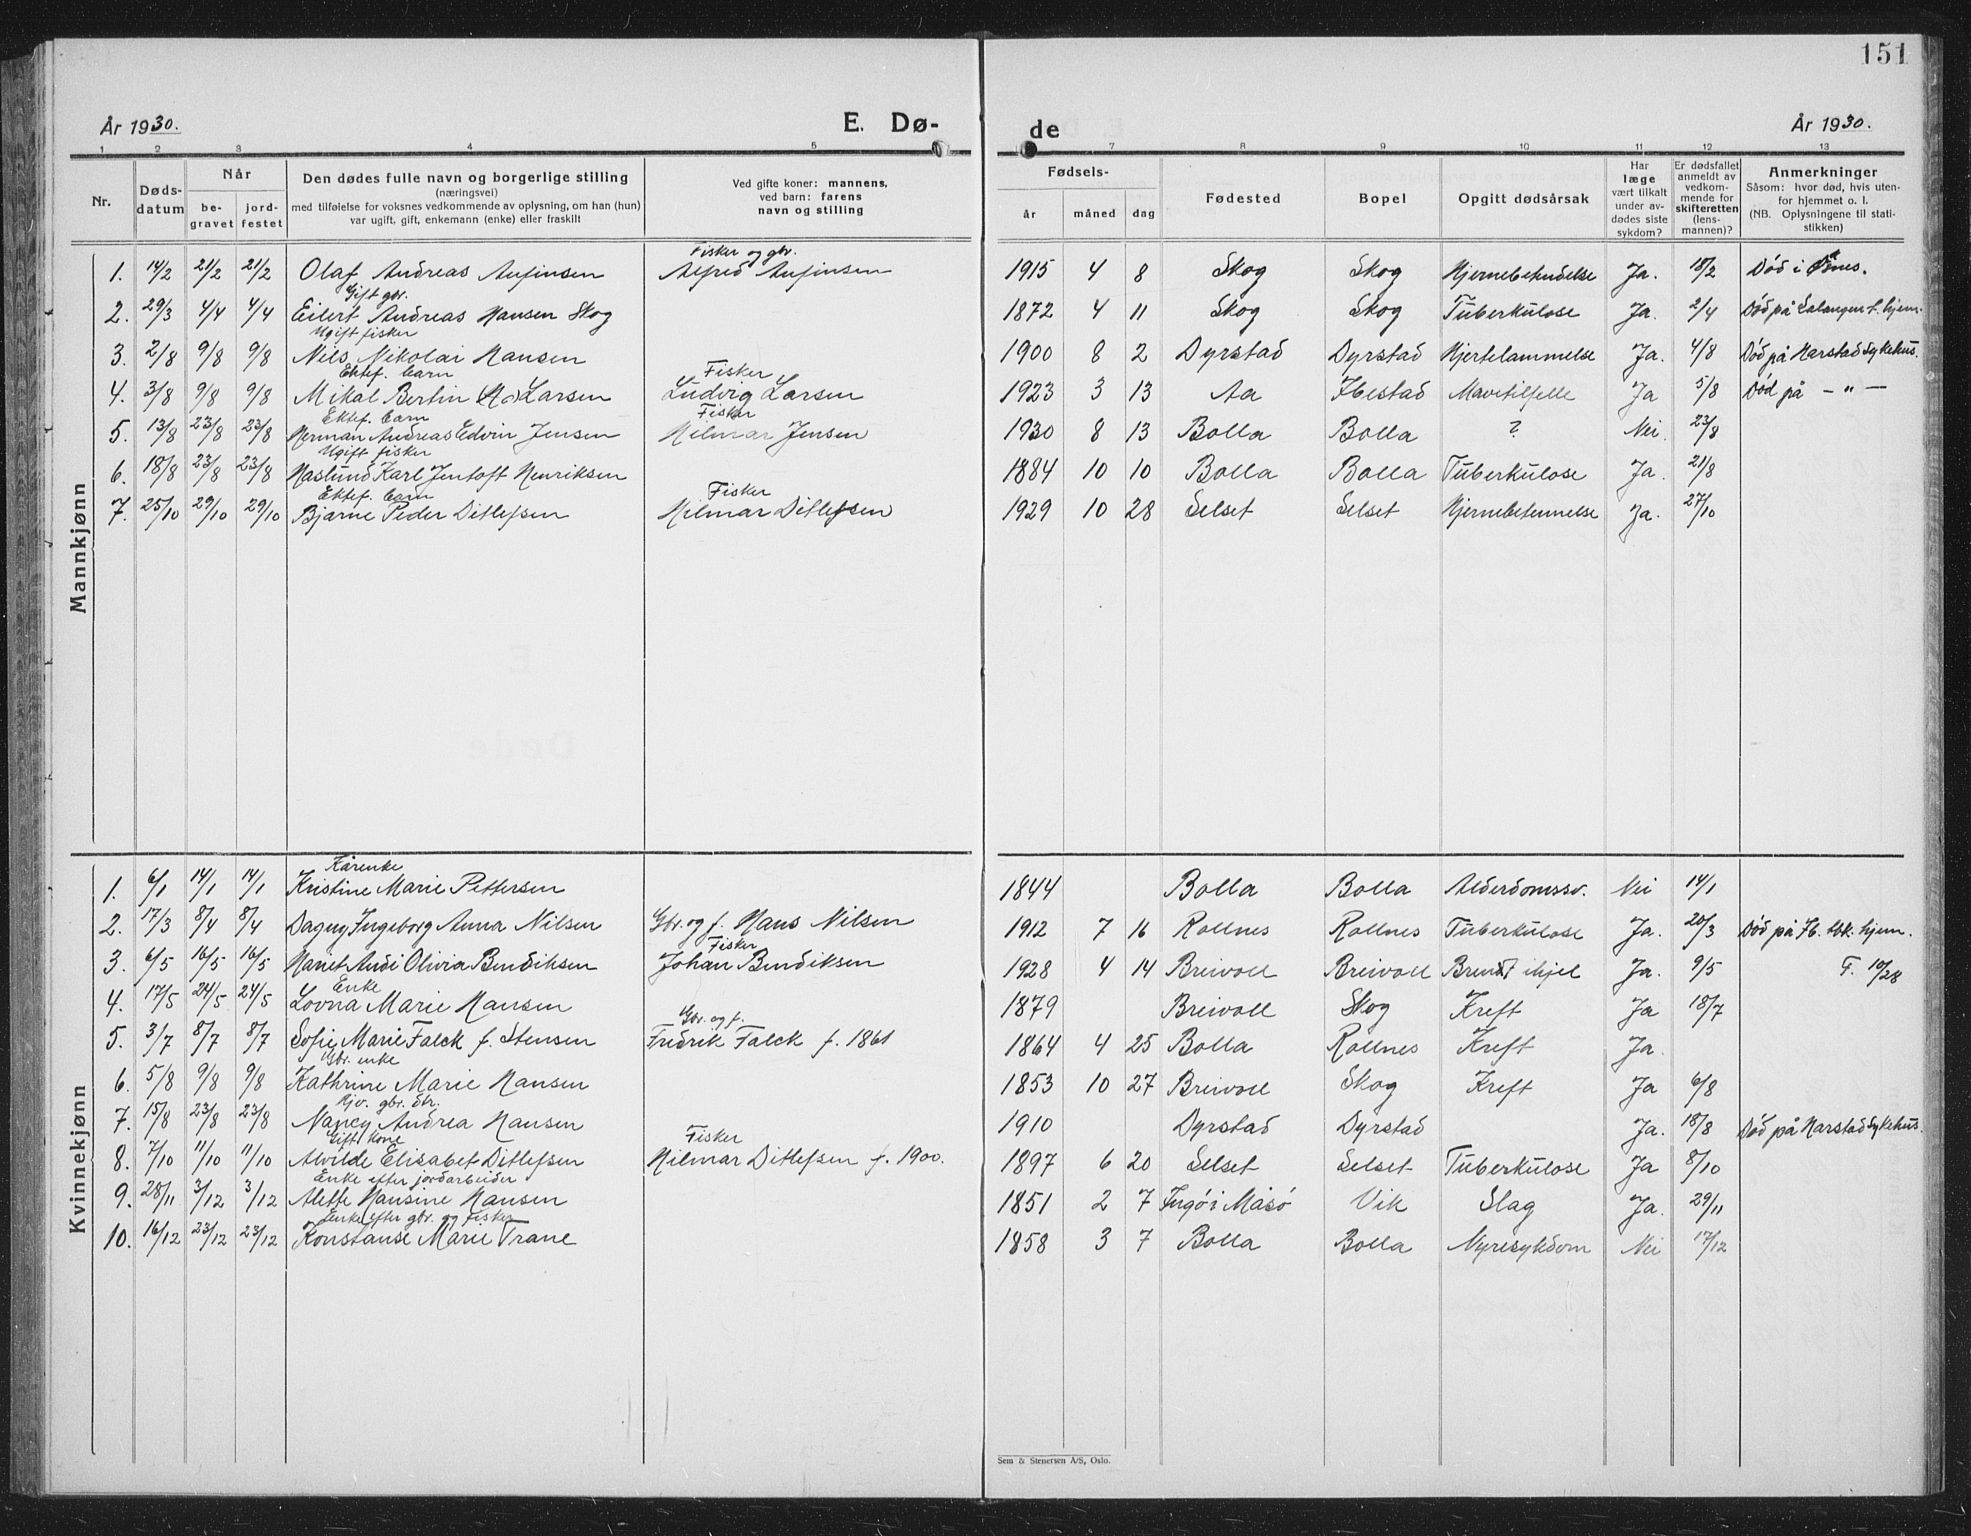 151
År 1930.
E. Dø-
de
År 1930.
1 2 3 4 5 7 8 9 10 11 12 13
Nr.
Døds-
datum
Når
be-
gravet
jord-
festet
Den dødes fulle navn og borgerlige stilling
(næringsvei)
med tilføielse for voksnes vedkommende av oplysning, om han (hun)
var ugift, gift, enkemann (enke) eller fraskilt
Ved gifte koner: mannens,
ved barn: farens
navn og stilling
Fødsels-
år måned dag
Fødested
Bopel
Opgitt dødsårsak
Har
læge
vært tilkalt
under av-
dødes siste
sykdom?
Er dødsfallet
anmeldt av
vedkom-
mende for
skifteretten
(lens-
mannen)?
Anmerkninger
Såsom: hvor død, hvis uten-
for hjemmet o. l.
(NB. Oplysningene til stati-
stikken)
Mannkjønn
Fisker og gbr.
1. 14/2 21/2 21/2 Olaf Andreas Anfinsen Alfred Anfinsen 1915 4 8 Skog Skog Hjernebetendelse Ja. 18/2 Død i
Gift gbr.
2. 29/3 4/4 4/4 Eilert Andreas Hansen Skog 1872 4 11 Skog Skog Tuberkulose Ja. 2/4 Død på Salangen t. hjem.
Ugift fisker
3. 2/8 9/8 9/8 Nils Nikolai Hansen 1900 8 2 Dyrstad Dyrstad Hjertelammelse Ja. 4/8 Død på Harstad Sykehus.
Ektef. barn Fisker
4. 3/8 9/8 9/8 Mikal Bertin Larsen Ludvig Larsen 1923 3 13 Aa Ibestad Mavetilfelle Ja 5/8 Død på — " —
Ektef. barn Fisker
5. 13/8 23/8 23/8 Herman Andreas Edvin Jensen Hilmar Jensen 1930 8 13 Bolla Bolla ? Nei. 23/8
Ugift fisker
6. 18/8 23/8 23/8 Haslund Karl Jentoft Henriksen 1884 10 10 Bolla Bolla Tuberkulose Ja. 21/8
Ektef. barn Fisker
7. 25/10 29/10 29/10 Bjarne Peder Ditlefsen Hilmar Ditlefsen 1929 10 28 Selset Selset Hjernebetennelse Ja. 27/10
Kvinnekjønn
Kårenke
1. 6/1 14/1 14/1 Kristine Marie Pettersen 1844 Bolla Bolla Alderdomssv. Nei 14/1
2. 17/3 8/4 8/4 Dagny Ingeborg Anna Nilsen Gbr. og f. Hans Nilsen 1912 7 16 Rollnes Rollnes Tuberkulose Ja. 20/3 Død på Ib. tbk. hjem.
Fisker
3. 6/5 16/5 16/5 Hariet Andi Olivia Bendiksen Johan Bendiksen 1928 4 14 Breivoll Breivoll Brendt ihjel Ja. 9/5 F. 10/28
Enke
4. 17/5 24/5 24/5 Lovna Marie Hansen 1879 Breivoll Skog Kreft Ja 18/7
Gbr. og f.
5. 3/7 8/7 8/7 Sofie Marie Falck f. Stensen Fredrik Falck f. 1861 1864 4 25 Bolla Rollnes Kreft Ja.
Gbr. enke
6. 5/8 9/8 9/8 Kathrine Marie Hansen 1853 10 27 Breivoll Skog Kreft Ja 6/8
Hjv. gbr. dtr.
7. 15/8 23/8 23/8 Nancy Andrea Hansen 1910 Dyrstad Dyrstad Ja. 18/8 Død på Harstad Sykehus.
Gift kone Fisker
8. 7/10 11/10 11/10 Alvilde Elisabet Ditlefsen Hilmar Ditlefsen f. 1900. 1897 6 20 Selset Selset Tuberkulose Ja 8/10
Enke efter jordarbeider
9. 28/11 3/12 3/12 Alette Hansine Hansen 1851 2 7 Ingö i Måsö Vik Slag Ja. 29/11
Enke efter gbr. og fisker
10. 16/12 23/12 23/12 Konstanse Marie Trane 1858 3 7 Bolla Bolla Nyresykdom Nei 17/12
Sem & Stenersen A/S, Oslo.